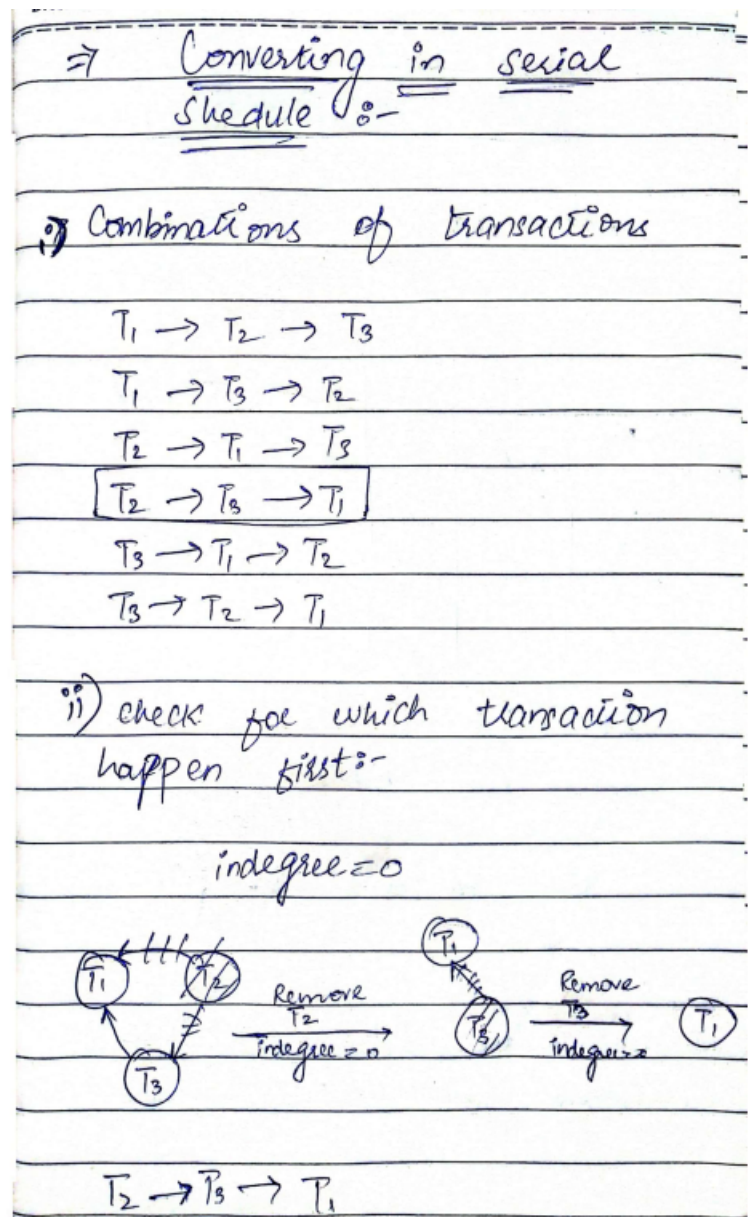 ⇒ Converting in serial
Shedule :-
i) Combinations of transactions
T₁ → T₂ → T₃
T₁ → T₃ → T₂
T₂ → T₁ → T₃
T₂ → T₃ → T₁
T₃ → T₁ → T₂
T₃ → T₂ → T₁
ii) check for which transaction
happen first:-
indegree=0
T₁ T₂ Remove T₂ indegree=0 T₁ T₃ Remove T₃ indegree=0 T₁
T₃
T₂ → T₃ → T₁